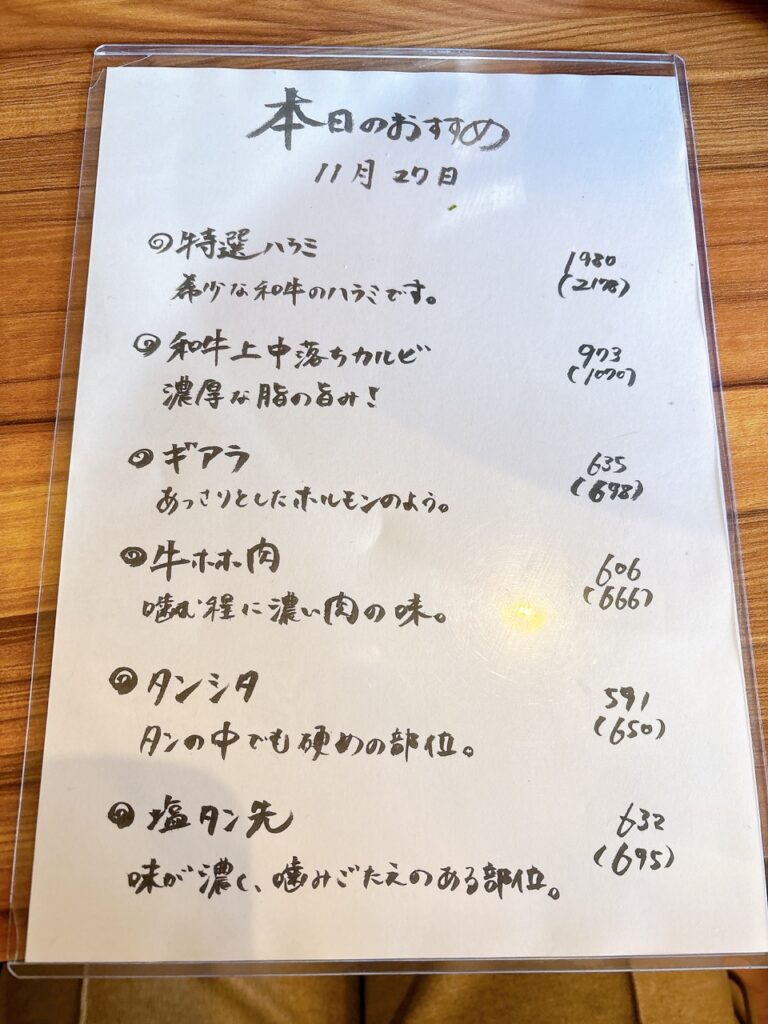 本日のおすすめ
11月27日
特選ハラミ 1980
希少な和牛のハラミです。 (2178)
和牛上中落ちカルビ 973
濃厚な脂の旨み! (1070)
ギアラ 635
あっさりとしたホルモンのよう。 (698)
牛ホホ肉 606
噛む程に濃い肉の味。 (666)
タンシタ 591
タンの中でも硬めの部位。 (650)
塩タン先 632
味が濃く、噛みごたえのある部位。 (695)